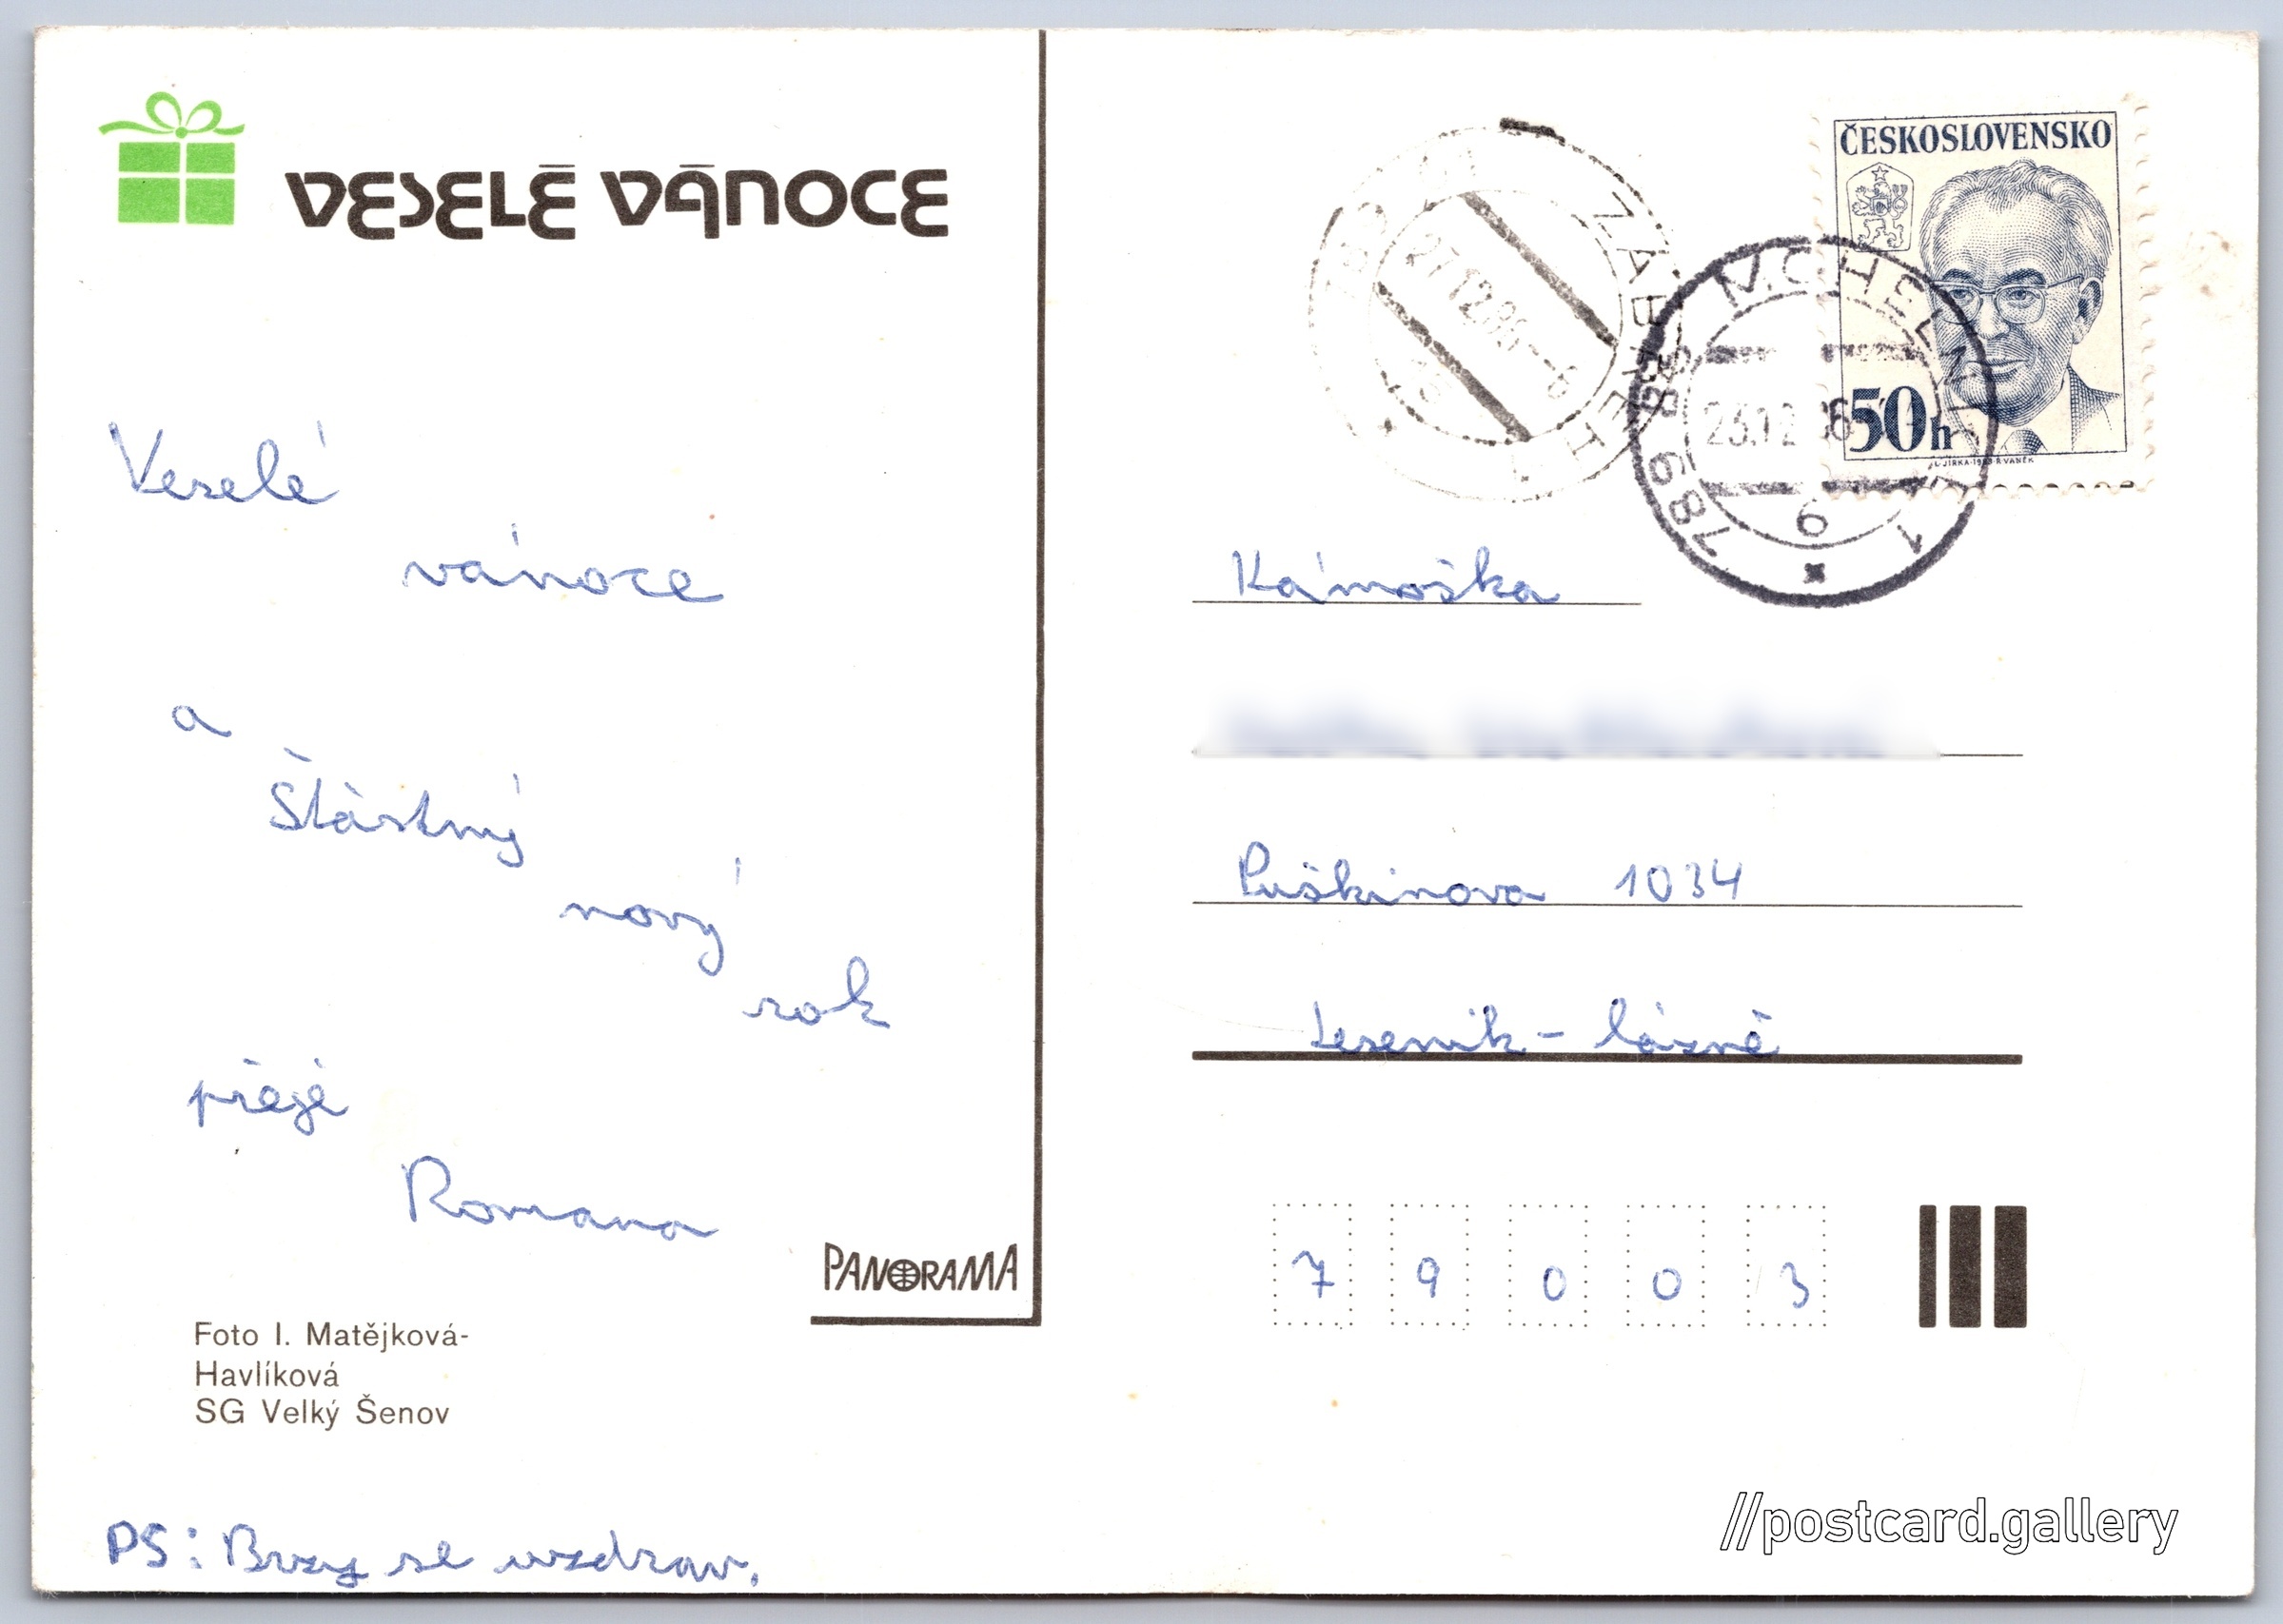 VESELÉ VÁNOCE
Veselé
vánoce
a
Štàstný
nový
rok
přeje
Romana
PANORAMA
Foto I. Matějková-
Havlíková
SG Velký Šenov
PS: Brzy se uzdrav.
ČESKOSLOVENSKO
50h
ZÁBŘEH
27.12.86-
M.CHELNICE 1
23.12.86
6
789 68
Kámoška
Puškinova 1034
Jeseník - lázně
7 9 0 0 3
//postcard.gallery